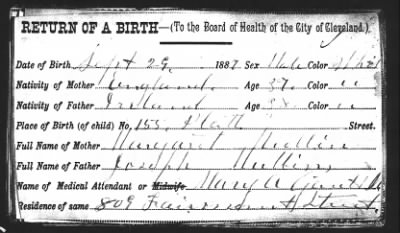 RETURN OF A BIRTH—(To the Board of Health of the City of Cleveland.)
Date of Birth Sept 29. 1887 Sex Male Color White
Nativity of Mother England. Age 37. Color "
Nativity of Father Ireland Age Color "
Place of Birth (of child) No. 155 Platt Street.
Full Name of Mother Margaret Mullin
Full Name of Father Joseph Mullin
Name of Medical Attendant or Midwife Mary A
Residence of same 809 Fairmount Street.